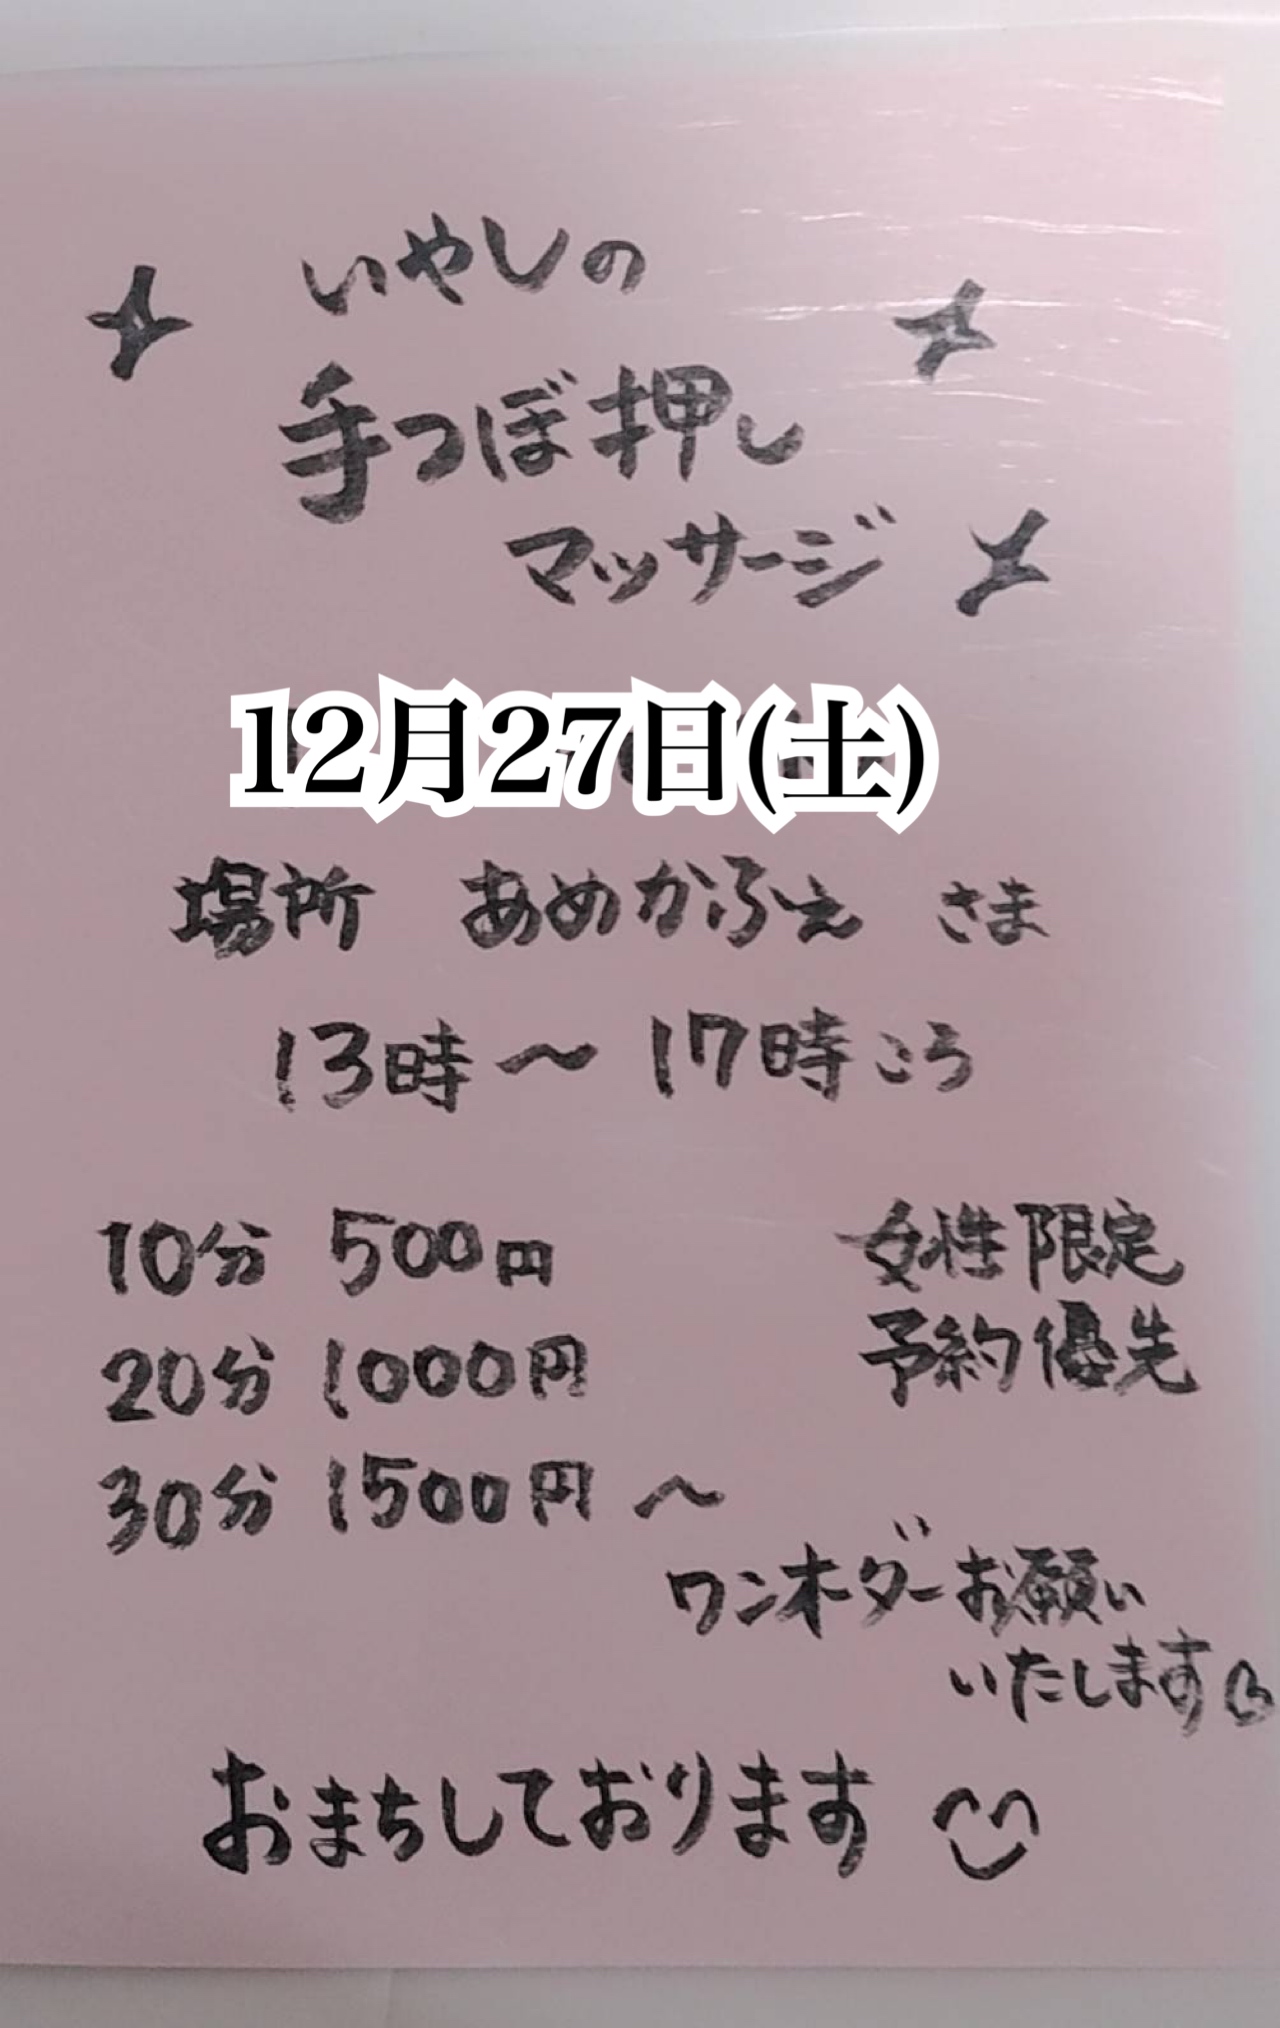 いやしの
手つぼ押し
マッサージ
12月27日(土)
場所 あめかふぇ さま
13時〜17時ころ
10分 500円
女性限定
20分 1000円
予約優先
30分 1500円〜
ワンオーダーお願い
いたします
おまちしております